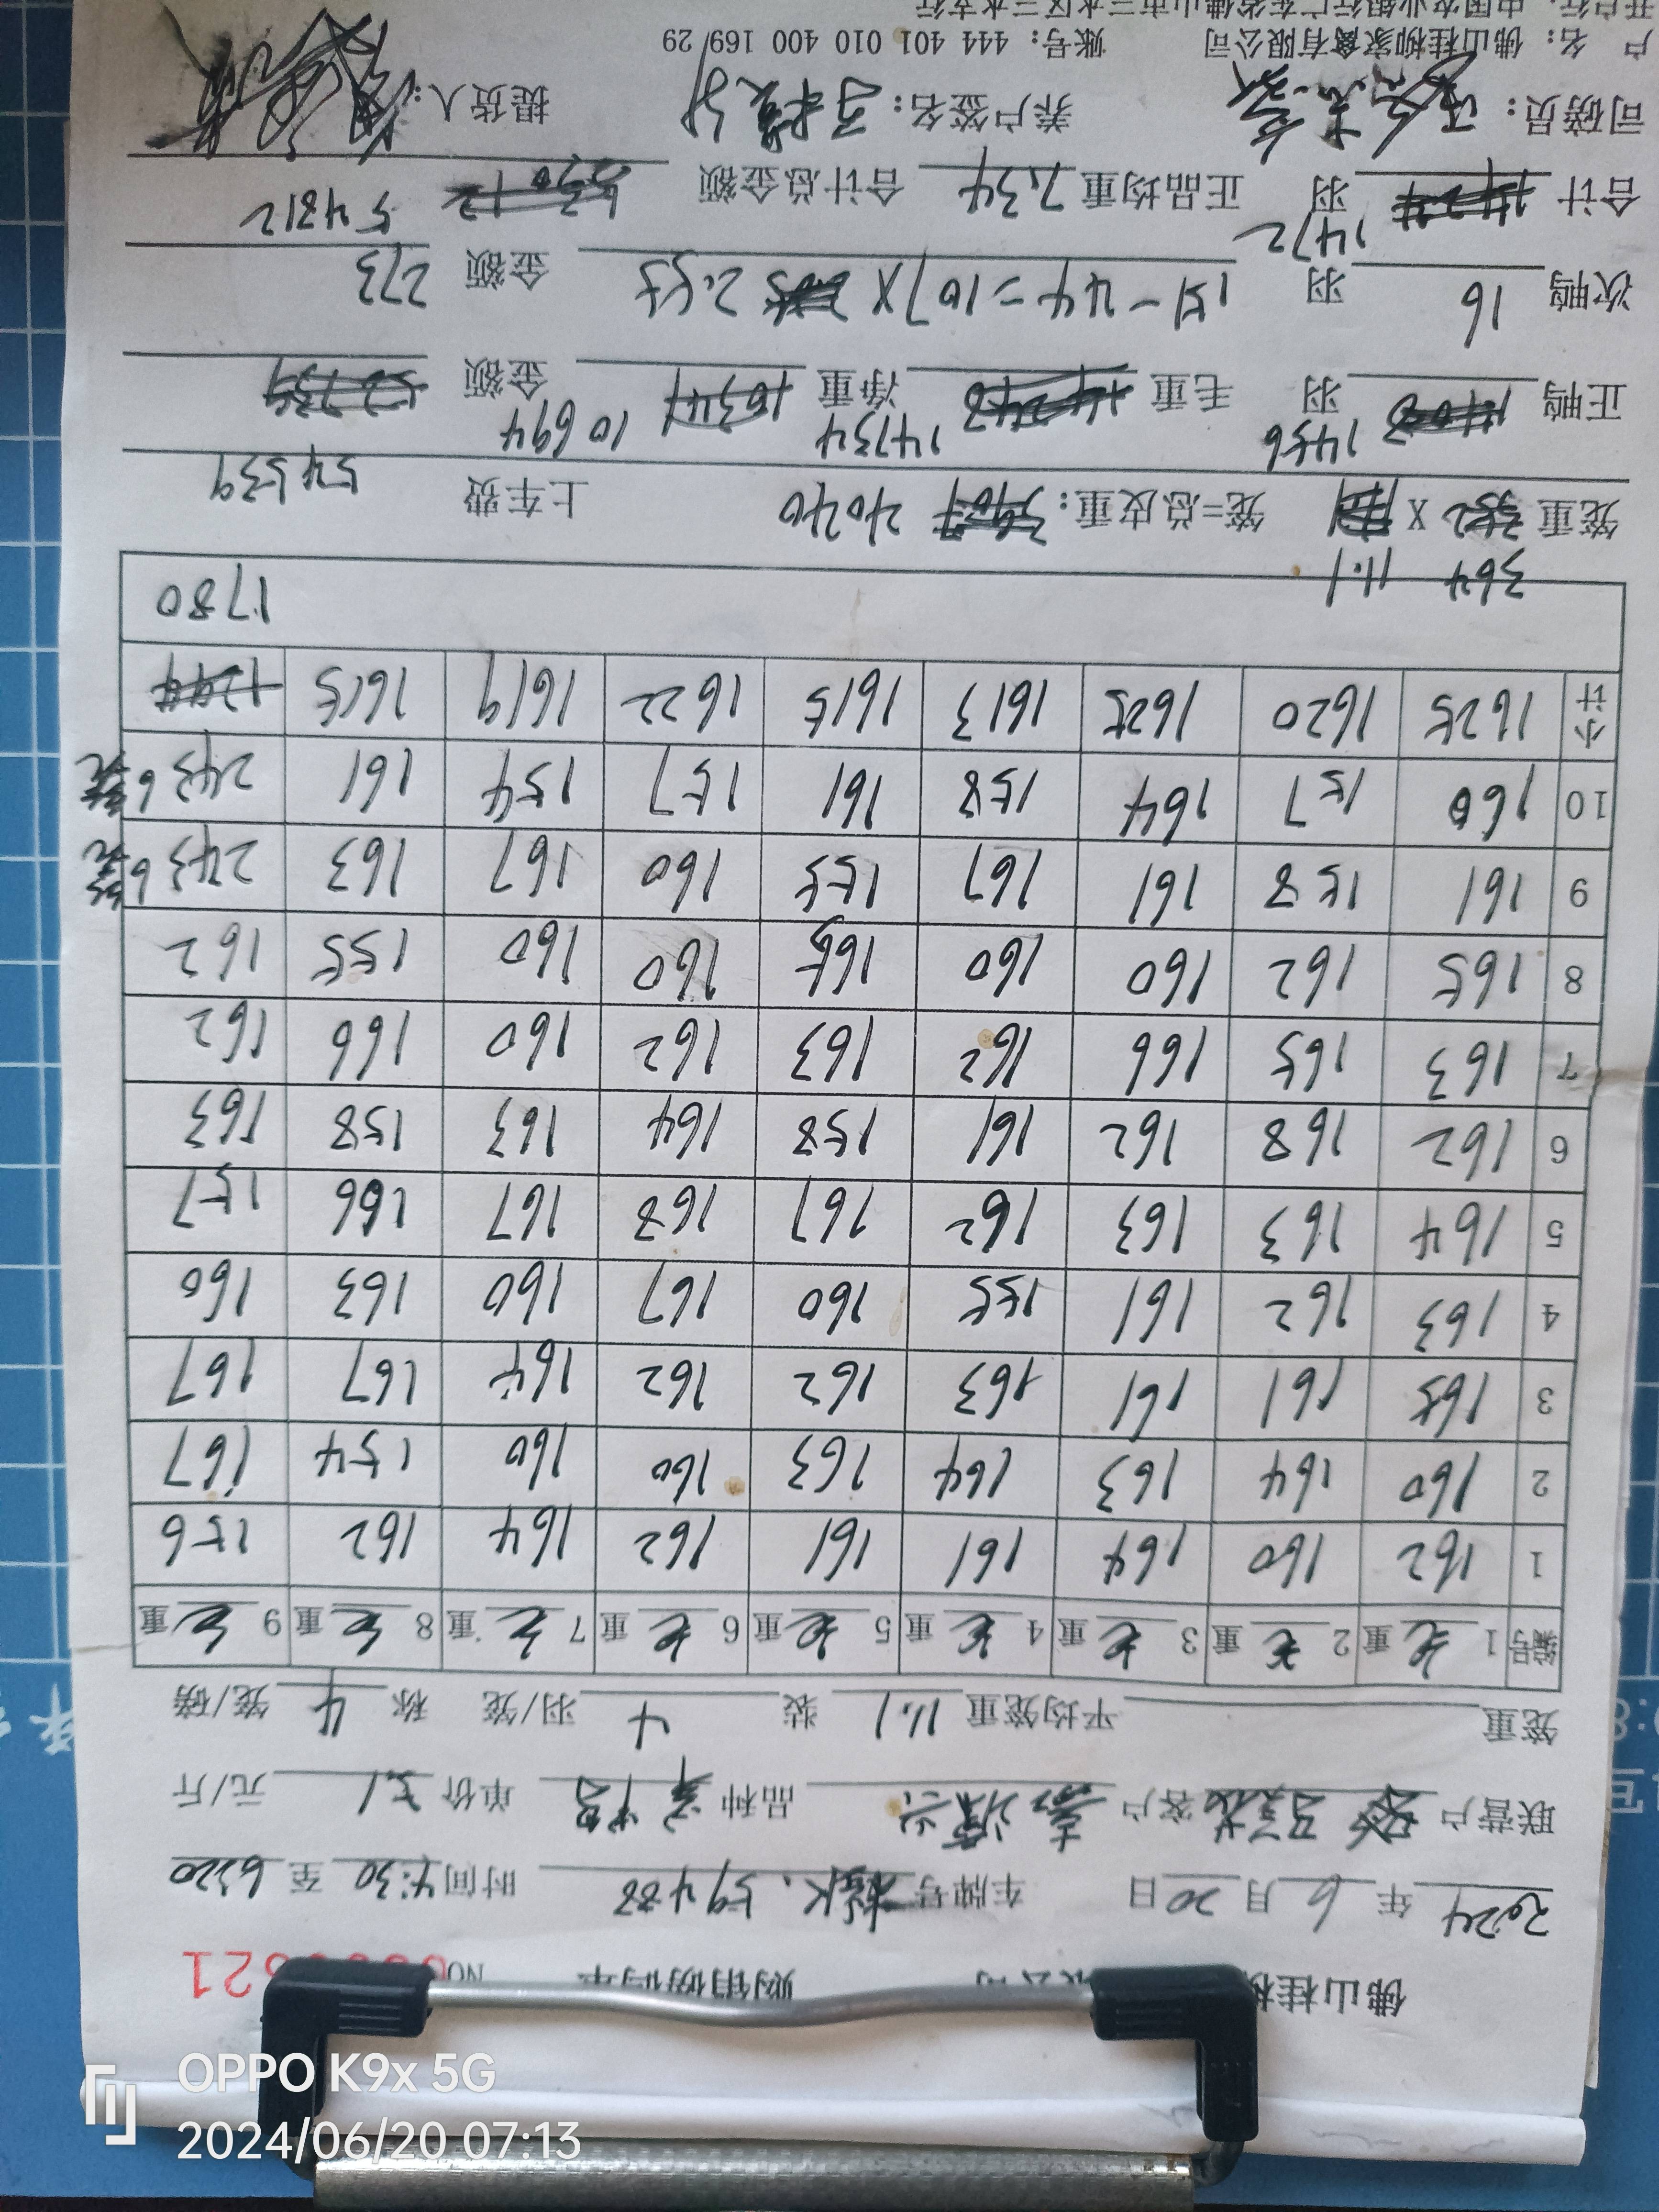 佛山桂 购销磅码单 NO 621
2024年6月20日 车牌号 59488 时间4:30至6:20
联营户 客户 品种 单价5.1元/斤
笼重 平均笼重11.1 装4羽/笼 称4笼/磅
编号 1毛重 2毛重 3毛重 4毛重 5毛重 6毛重 7毛重 8毛重 9毛重
1 162 160 164 161 161 162 164 162 156
2 160 164 163 164 163 160 160 154 167
3 165 161 161 163 162 162 164 167 167
4 163 162 161 155 160 167 160 163 160
5 164 163 163 162 167 168 167 166 157
6 162 168 162 161 158 164 163 158 163
7 163 165 166 162 163 162 160 166 162
8 165 162 160 160 165 160 160 155 162
9 161 158 161 167 155 160 167 163 243 6壳
10 160 157 164 158 161 157 154 161 243 6壳
小计 1625 1620 1625 1613 1615 1622 1619 1615
1780
364 11.1
笼重 X 笼=总皮重: 4040 上车费 54539
正鸭 1456 羽 毛重 14734 净重 10694 金额
次鸭 16 羽 151-44=107X 2.55 金额 273
合计 1472 羽 正品均重 7.34 合计总金额 54812
司磅员: 养户签名: 提货人:
户 名: 佛山桂柳家禽有限公司 账号: 444 401 010 400 169 29
开户行: 中国农业银行广东省佛山市三水区三水支行
OPPO K9x 5G
2024/06/20 07:13